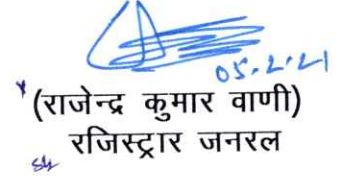 05.2.21
(राजेन्द्र कुमार वाणी)
रजिस्ट्रार जनरल